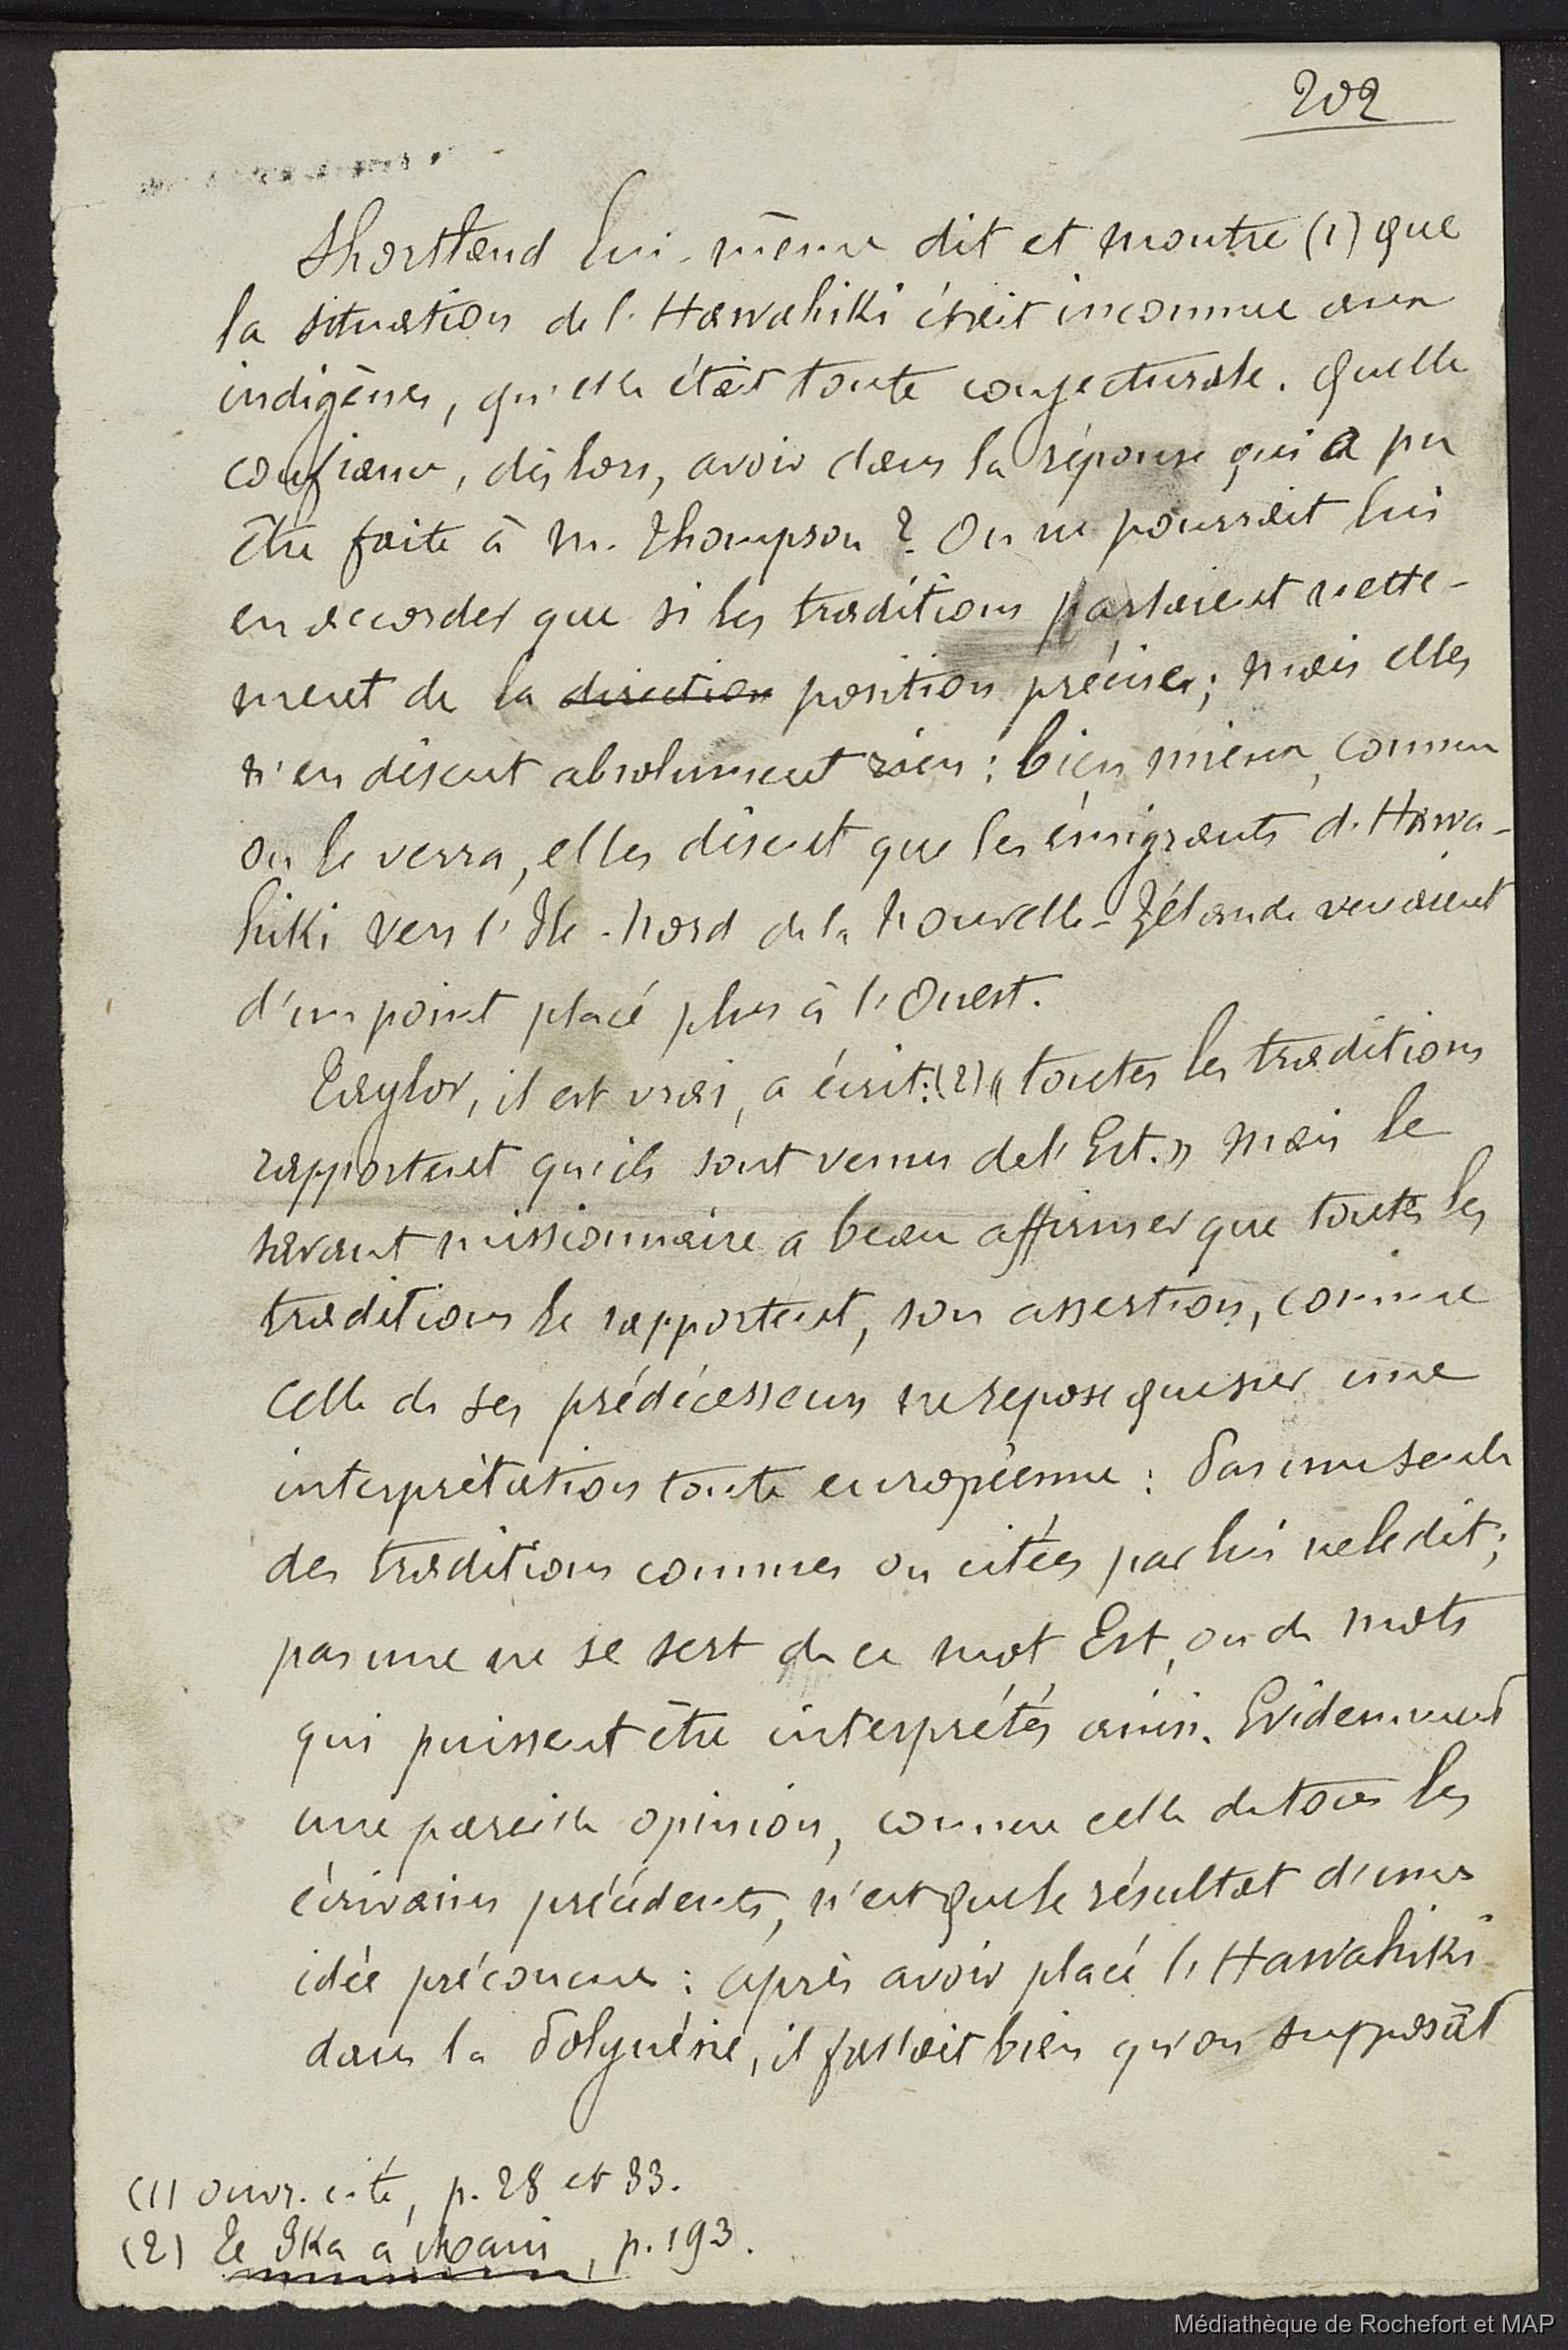 202
Shortland lui-même dit et montre (1) que
la situation de l'Hawahiki était inconnue aux
indigènes, qu'elle était toute conjecturale. Quelle
confiance, dès lors, avoir dans la réponse qui a pu
être faite à M. Thompson ? On ne pourrait lui
en accorder que si les traditions parlaient nette-
ment de la direction position précise; mais elles
n'en disent absolument rien : bien mieux, comme
on le verra, elles disent que les émigrants d'Hawa-
hiki vers l'Ile-Nord de la Nouvelle-Zélande venaient
d'un point placé plus à l'Ouest.
Taylor, il est vrai, a écrit: (2) « toutes les traditions
rapportent qu'ils sont venus de l'Est. » Mais le
savant missionnaire a beau affirmer que toutes les
traditions le rapportent, son assertion, comme
celle de ses prédécesseurs ne repose que sur une
interprétation toute européenne : Pas une seule
des traditions connues ou citées par lui ne le dit;
pas une ne se sert de ce mot Est, ou de mots
qui puissent être interprétés ainsi. Evidemment
une pareille opinion, comme celle de tous les
écrivains précédents, n'est que le résultat d'une
idée préconçue : après avoir placé l'Hawahiki
dans la Polynésie, il fallait bien qu'on supposât
(1) Ouvr. cité, p. 28 et 33.
(2) Te Ika a Maui, p. 193.
Médiathèque de Rochefort et MAP